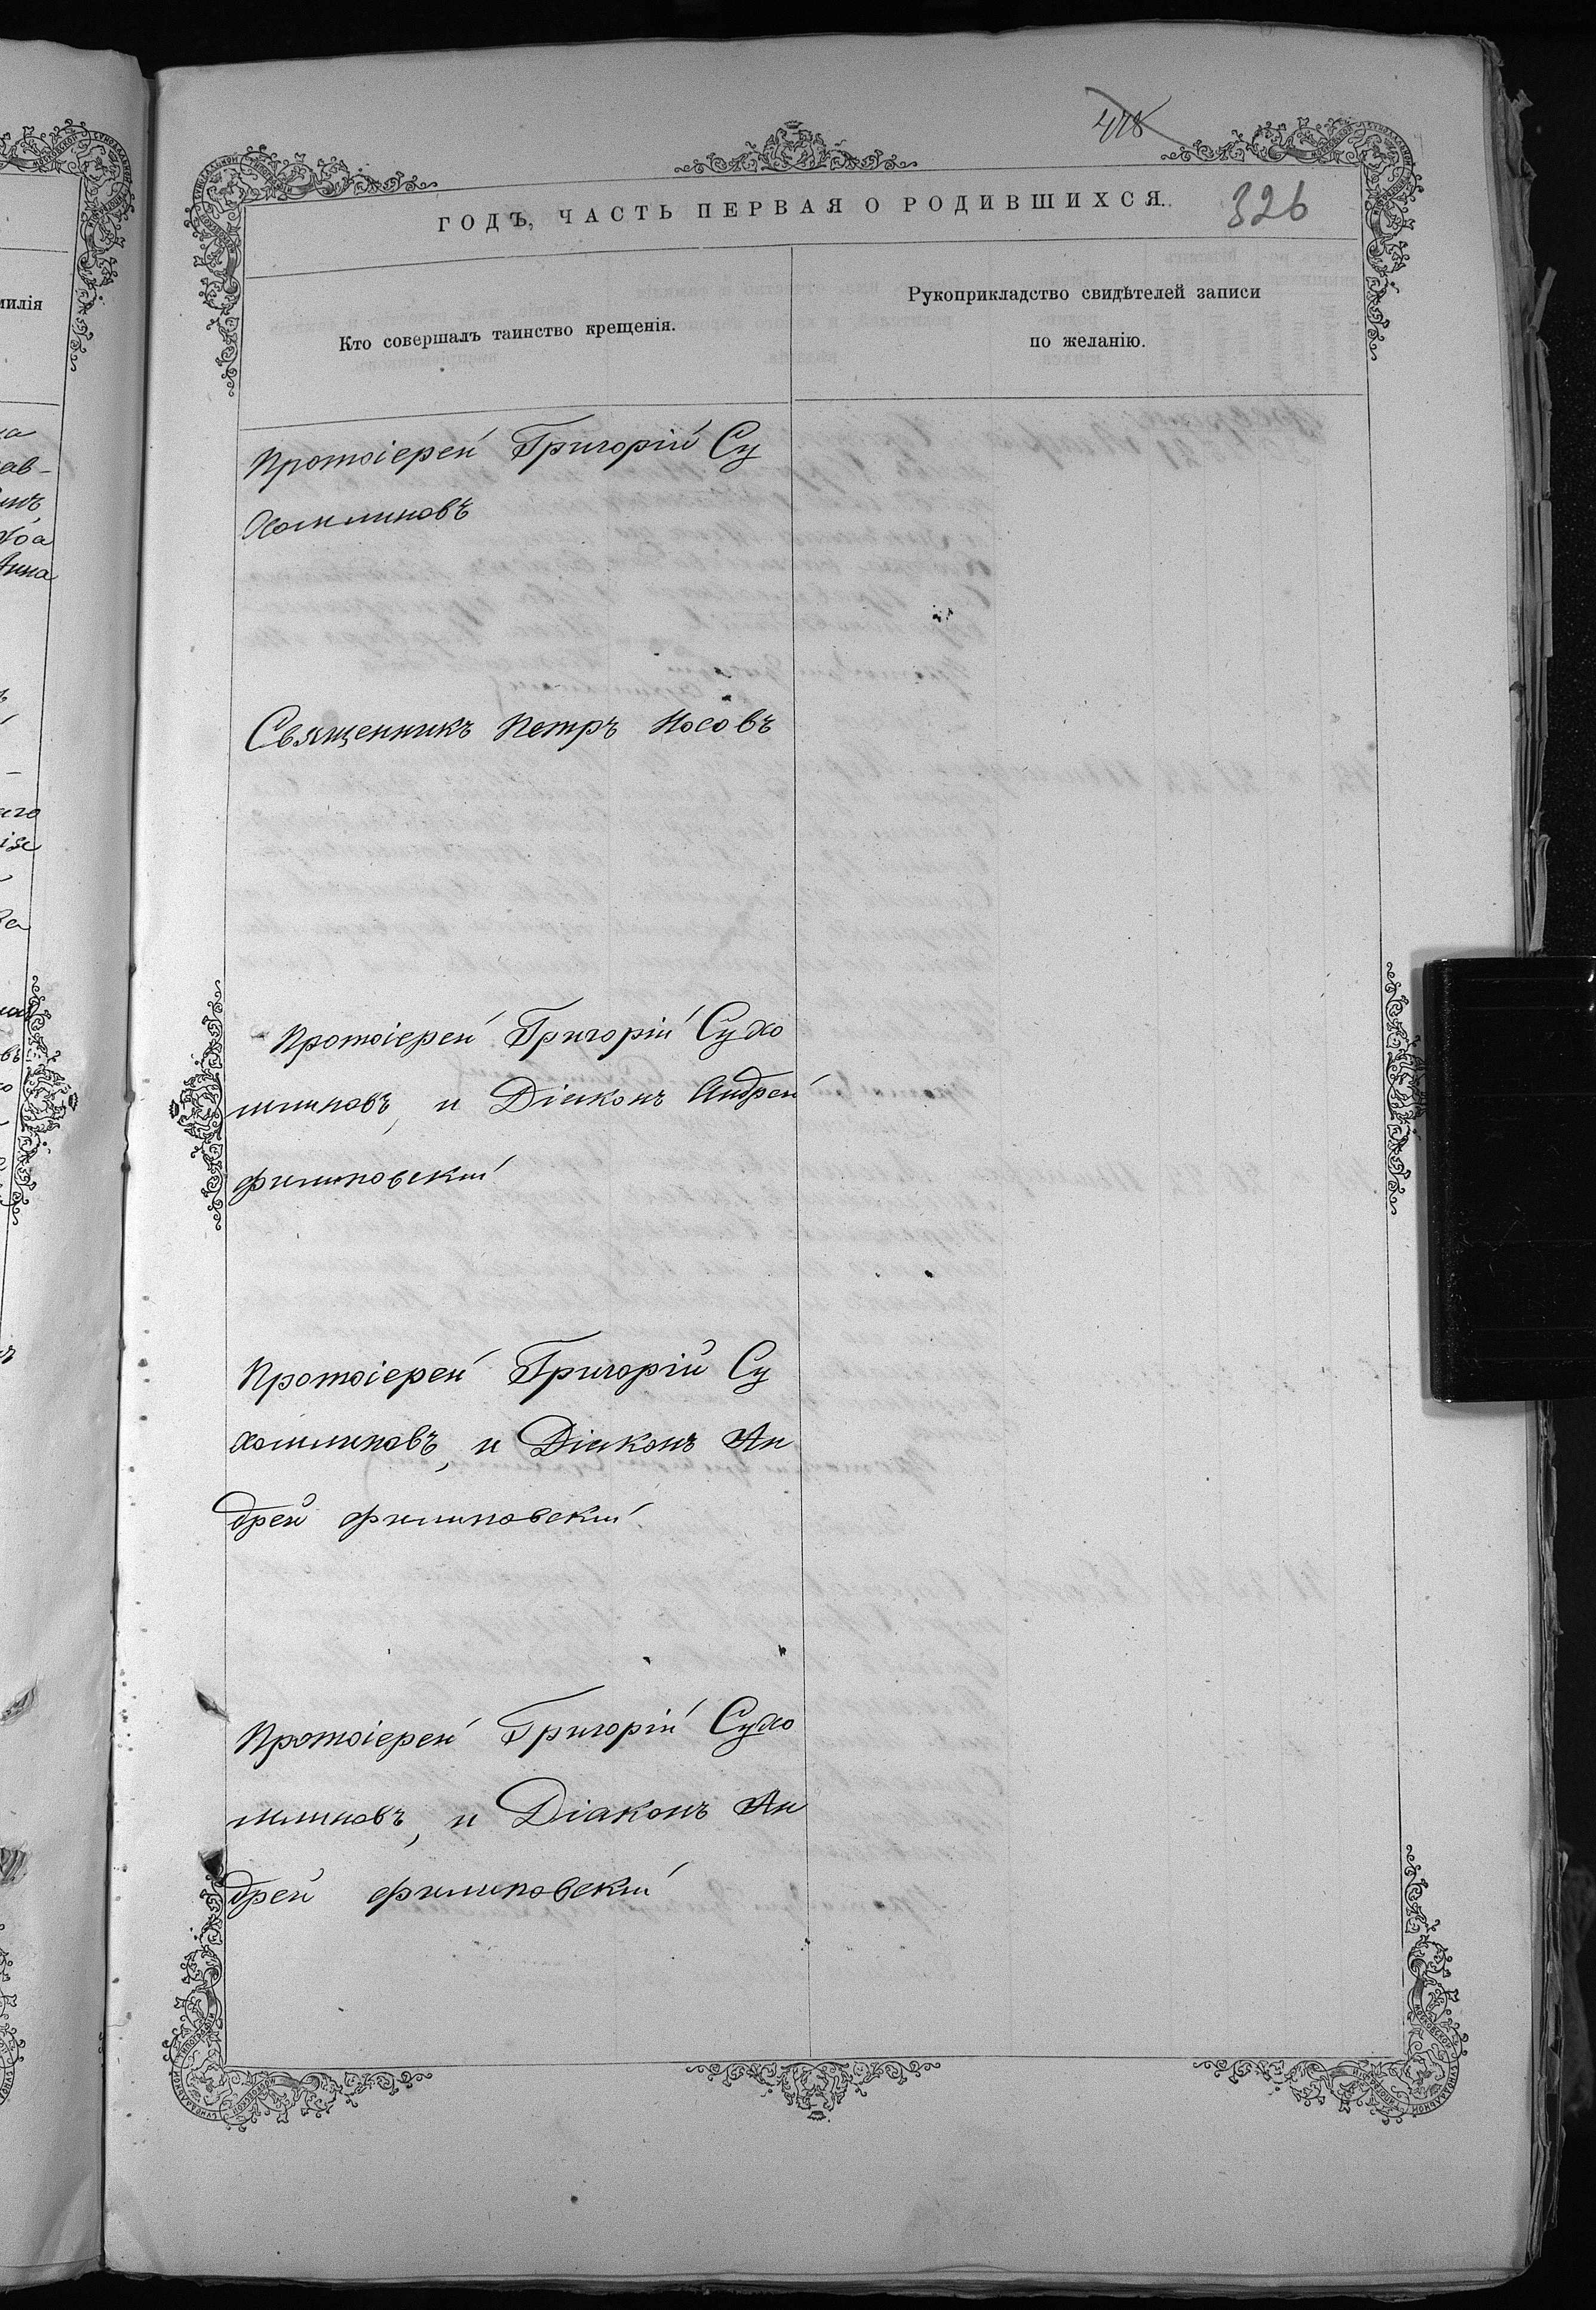 418
ГОДЪ, ЧАСТЬ ПЕРВАЯ О РОДИВШИХСЯ.
326
милія
Кто совершалъ таинство крещенія.
Рукоприкладство свидѣтелей записи
по желанію.
Протоіерей Григорій Су
хомлиновъ
Священникъ Петръ Носовъ
Протоіерей Григорій Сухо
млиновъ, и Діаконъ Андрей
Филиповскій
Протоіерей Григорій Су
хомлиновъ, и Діаконъ Ан
дрей Филиповскій
Протоіерей Григорій Сухо
млиновъ, и Діаконъ Ан
дрей Филиповскій